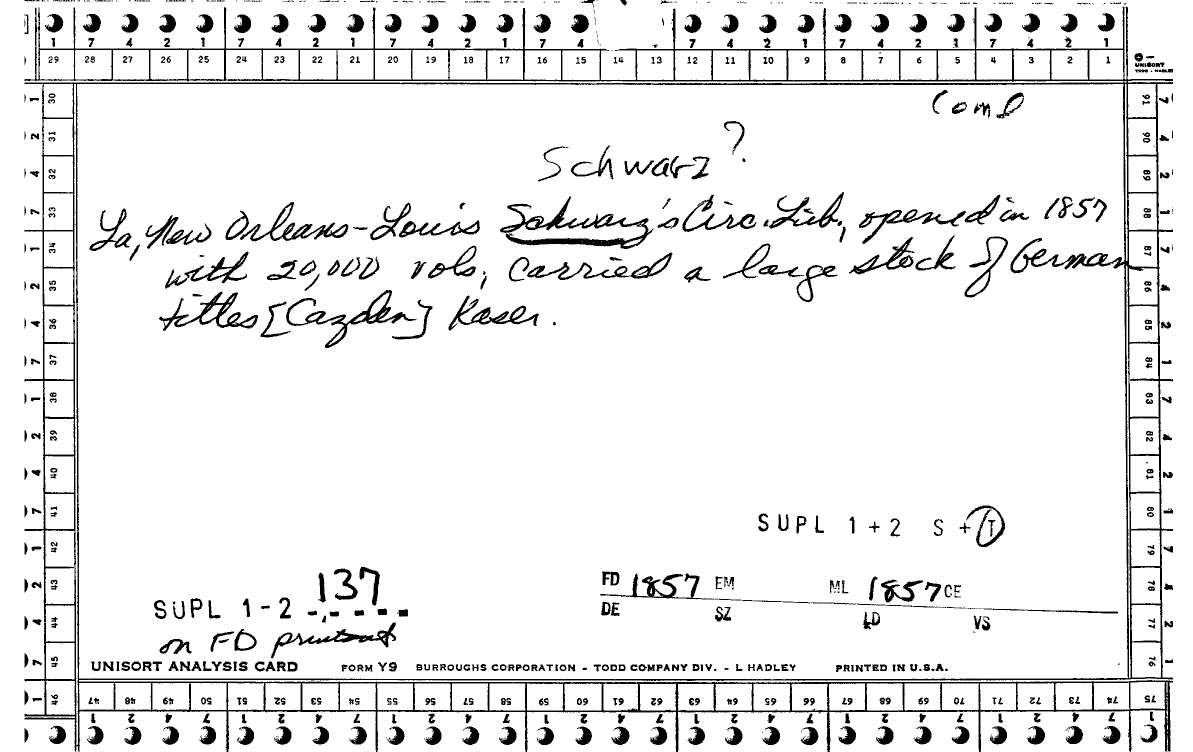 1 7 4 2 1 7 4 2 1 7 4 2 1 7 4 7 4 2 1 7 4 2 1 7 4 2 1
29 28 27 26 25 24 23 22 21 20 19 18 17 16 15 14 13 12 11 10 9 8 7 6 5 4 3 2 1
UNISORT
TODD - HADLEY
Coml
Schwarz?
La, New Orleans - Louis Schwarz's Circ. Lib., opened in 1857
with 20,000 vols, carried a large stock of German
titles [Cazden] Kaser.
SUPL 1+2 S+T
SUPL 1-2 137
on FD printout
FD 1857 EM ML 1857 CE
DE SZ LD VS
UNISORT ANALYSIS CARD FORM Y9 BURROUGHS CORPORATION - TODD COMPANY DIV. - L HADLEY PRINTED IN U.S.A.
30 31 32 33 34 35 36 37 38 39 40 41 42 43 44 45 46
1 2 4 7 1 2 4 7 1 2 4 7 1 2 4 7 1
91 90 89 88 87 86 85 84 83 82 81 80 79 78 77 76 75
47 48 49 50 51 52 53 54 55 56 57 58 59 60 61 62 63 64 65 66 67 68 69 70 71 72 73 74 75
1 2 4 7 1 2 4 7 1 2 4 7 1 2 4 7 1 2 4 7 1 2 4 7 1 2 4 7 1